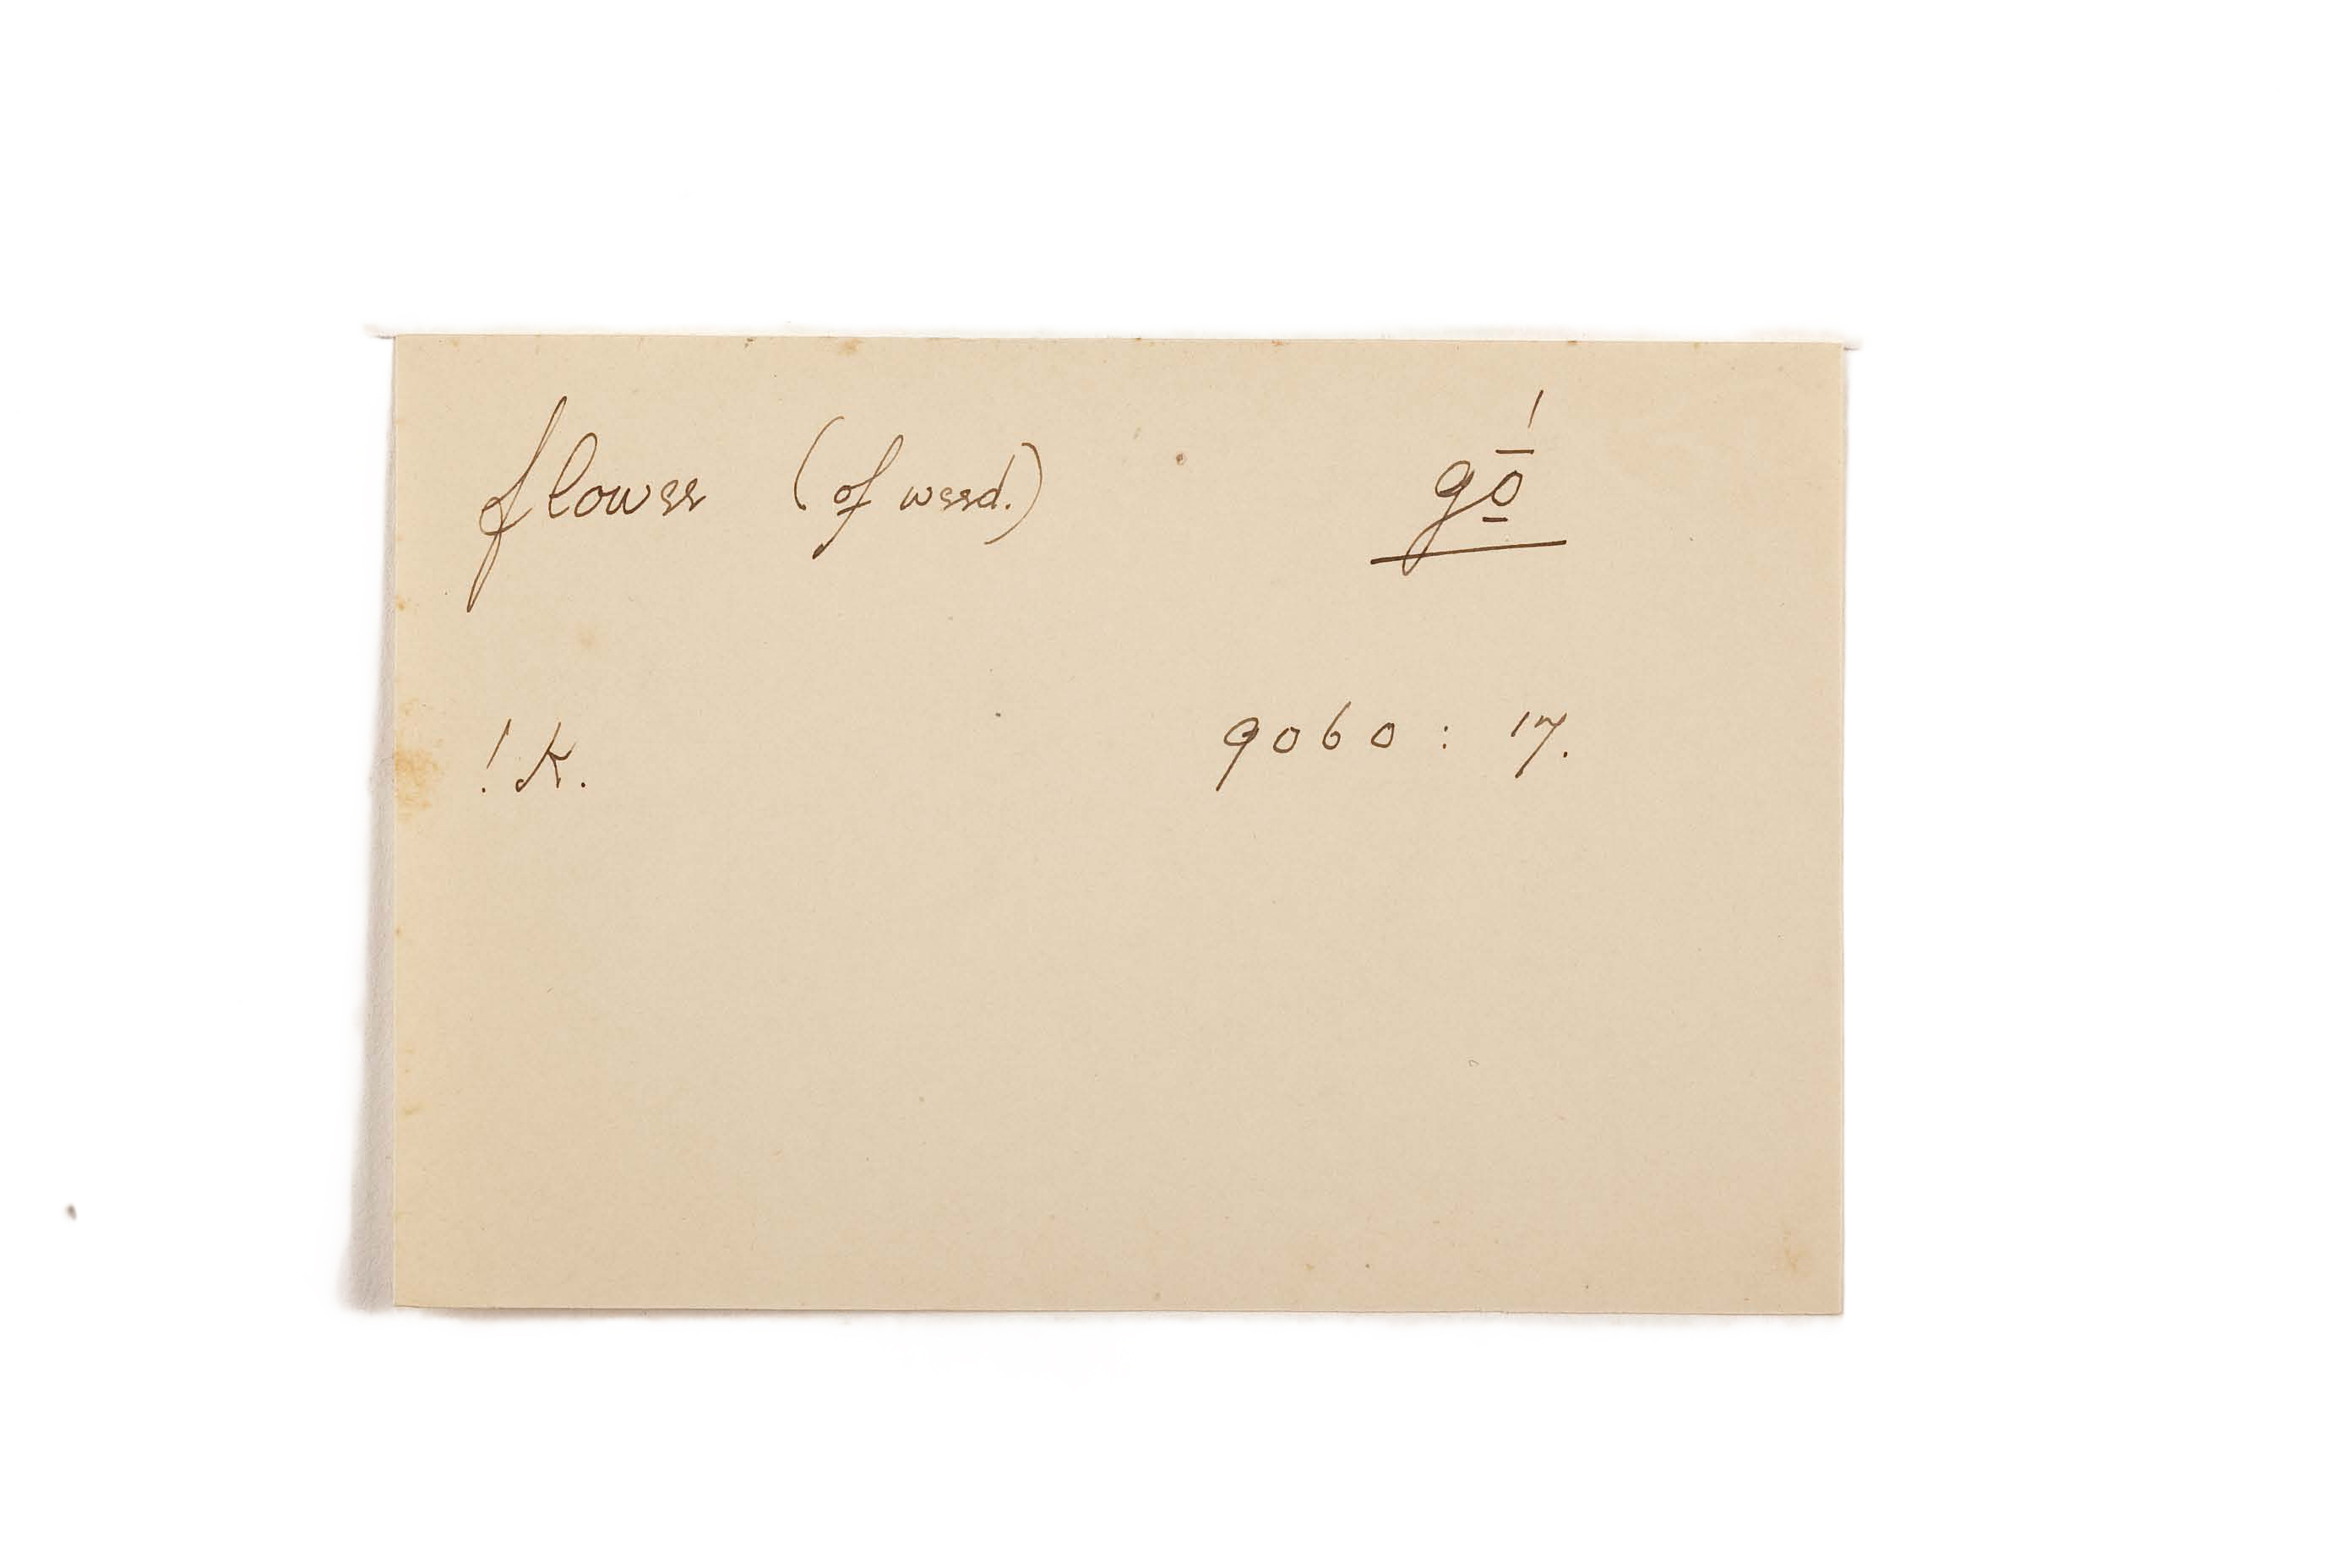 flower (of weed.) gṓ̱
!k. 9060 : 17.